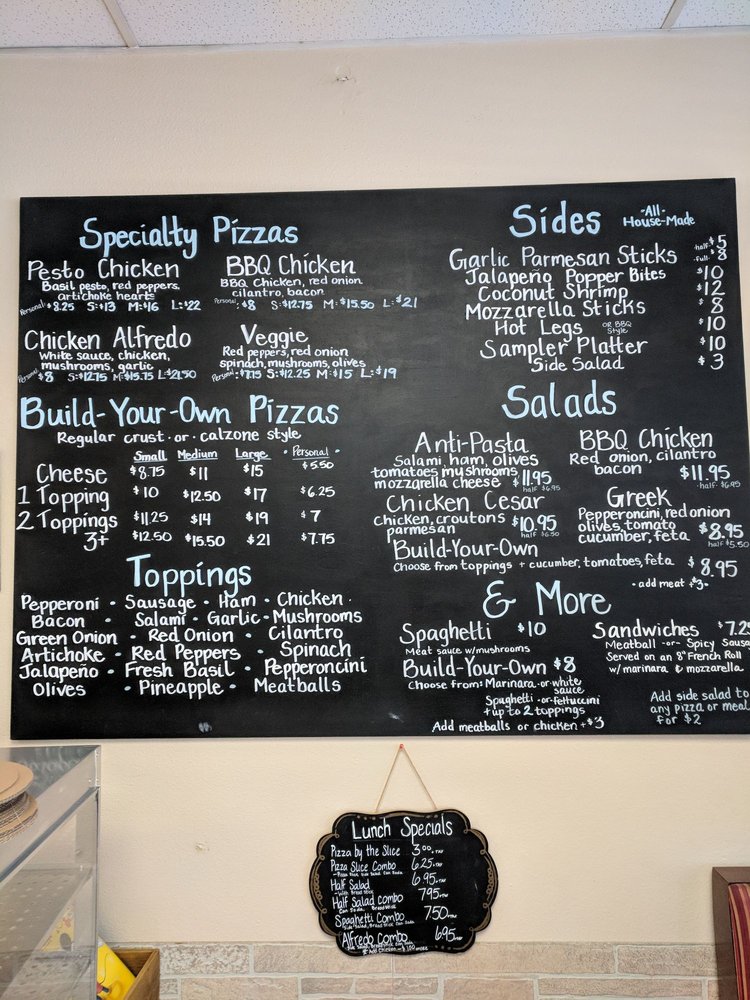 Specialty Pizzas
Pesto Chicken
Basil pesto, red peppers,
artichoke hearts
Personal: $8.25 S:$13 M:$16 L:$22
BBQ Chicken
BBQ Chicken, red onion
cilantro, bacon
Personal: $8 S:$12.75 M:$15.50 L:$21
Chicken Alfredo
White sauce, chicken,
mushrooms, garlic
Personal: $8 S:$12.75 M:$15.75 L:$21.50
Veggie
Red peppers, red onion
spinach, mushrooms, olives
Personal: $7.75 S:$12.25 M:$15 L:$19
Build-Your-Own Pizzas
Regular crust · or · calzone style
Small Medium Large · Personal ·
Cheese $8.75 $11 $15 $5.50
1 Topping $10 $12.50 $17 $6.25
2 Toppings $11.25 $14 $19 $7
3+ $12.50 $15.50 $21 $7.75
Toppings
Pepperoni · Sausage · Ham · Chicken ·
Bacon · Salami · Garlic · Mushrooms
Green Onion · Red Onion · Cilantro
Artichoke · Red Peppers · Spinach
Jalapeño · Fresh Basil · Pepperoncini
Olives · Pineapple · Meatballs
Sides
·All·
House-Made
Garlic Parmesan Sticks ·half· $5
·Full· $8
Jalapeño Popper Bites $10
Coconut Shrimp $12
Mozzarella Sticks $8
Hot Legs OR BBQ Style $10
Sampler Platter $10
Side Salad $3
Salads
Anti-Pasta
Salami, ham, olives
tomatoes mushrooms
mozzarella cheese $11.95
half $6.95
BBQ Chicken
Red onion, cilantro
bacon $11.95
·half· $6.95
Chicken Cesar
chicken, croutons
parmesan $10.95
half $6.50
Greek
Pepperoncini, red onion
olives, tomato
cucumber, feta $8.95
half $5.50
Build-Your-Own
Choose from toppings + cucumber, tomatoes, feta $8.95
· add meat $3 ·
& More
Spaghetti $10
Meat sauce w/mushrooms
Build-Your-Own $8
Choose from: Marinara · or · white
sauce
Spaghetti · or · fettuccini
+ up to 2 toppings
Add meatballs or chicken + $3
Sandwiches $7.25
Meatball · or · Spicy Sausa
Served on an 8" French Roll
w/ marinara & mozzarella
Add side salad to
any pizza or meal
for $2
Lunch Specials
Pizza by the Slice 3.00 +tax
Pizza Slice Combo 6.25 +tax
Half Salad 6.95 +tax
with Bread Stick
Half Salad combo 7.95 +tax
Can Soda, Bread Stick
Spaghetti Combo 7.50 +tax
Side Salad, Bread Stick, Can Soda
Alfredo Combo 6.95 +tax